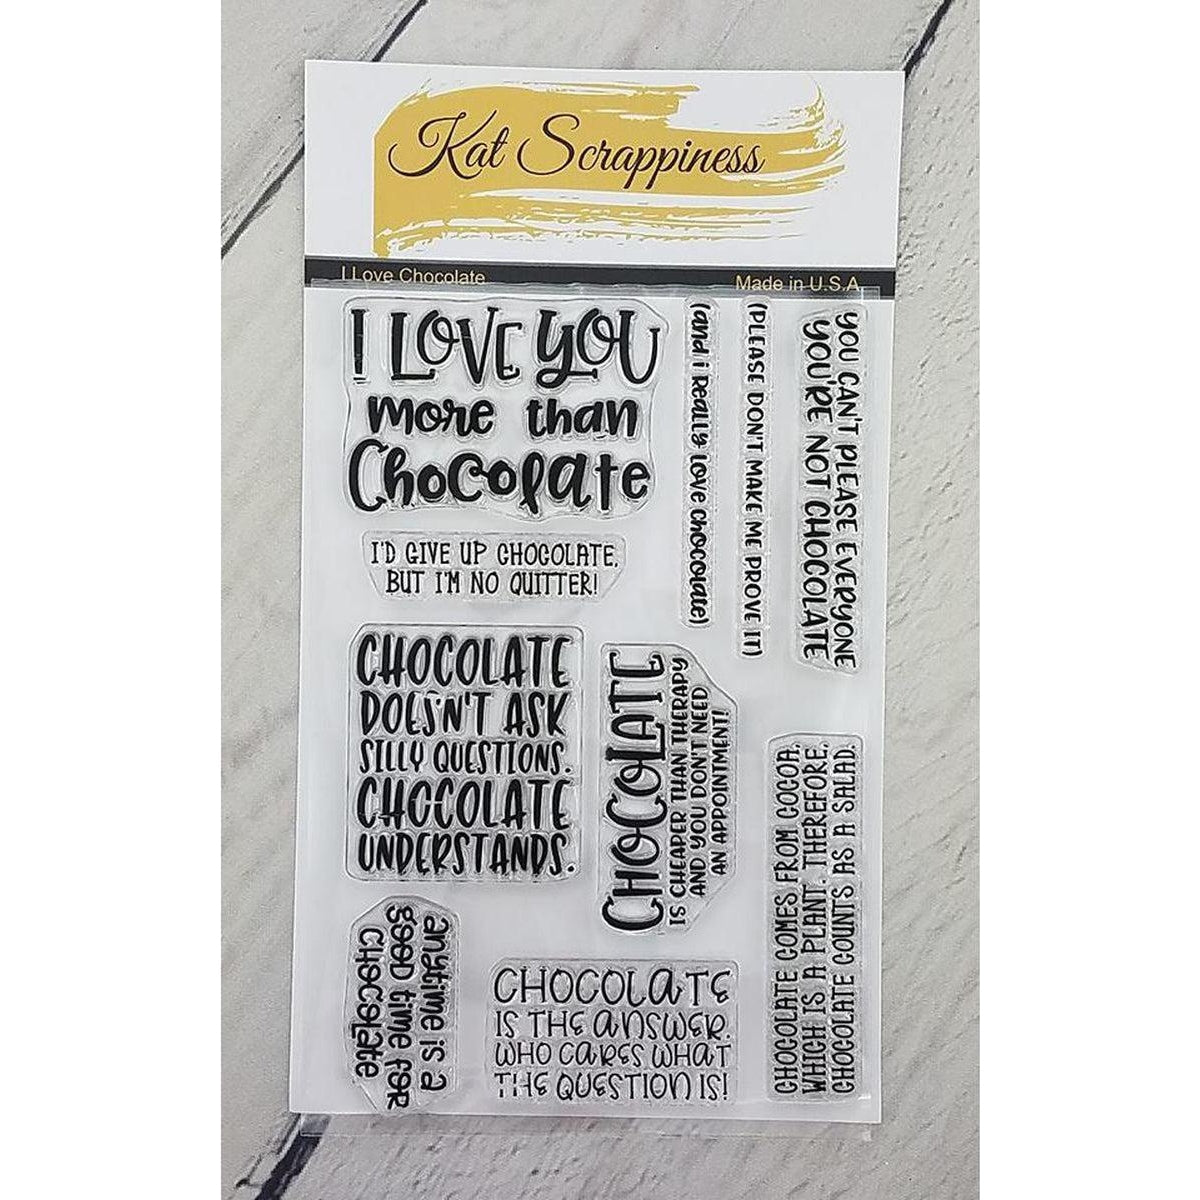 Kat Scrappiness
I Love Chocolate
Made in U.S.A
I LOVE YOU
more than
Chocolate
(and i Really Love Chocolate)
(PLEASE DON'T MAKE ME PROVE IT)
YOU CAN'T PLEASE EVERYONE
YOU'RE NOT CHOCOLATE
I'D GIVE UP CHOCOLATE,
BUT I'M NO QUITTER!
CHOCOLATE
DOESN'T ASK
SILLY QUESTIONS.
CHOCOLATE
UNDERSTANDS.
CHOCOLATE
IS CHEAPER THAN THERAPY
AND YOU DON'T NEED
AN APPOINTMENT!
CHOCOLATE COMES FROM COCOA,
WHICH IS A PLANT. THEREFORE,
CHOCOLATE COUNTS AS A SALAD.
anytime is a
good time for
Chocolate
CHOCOLATE
IS THE ANSWER.
WHO CARES WHAT
THE QUESTION IS!